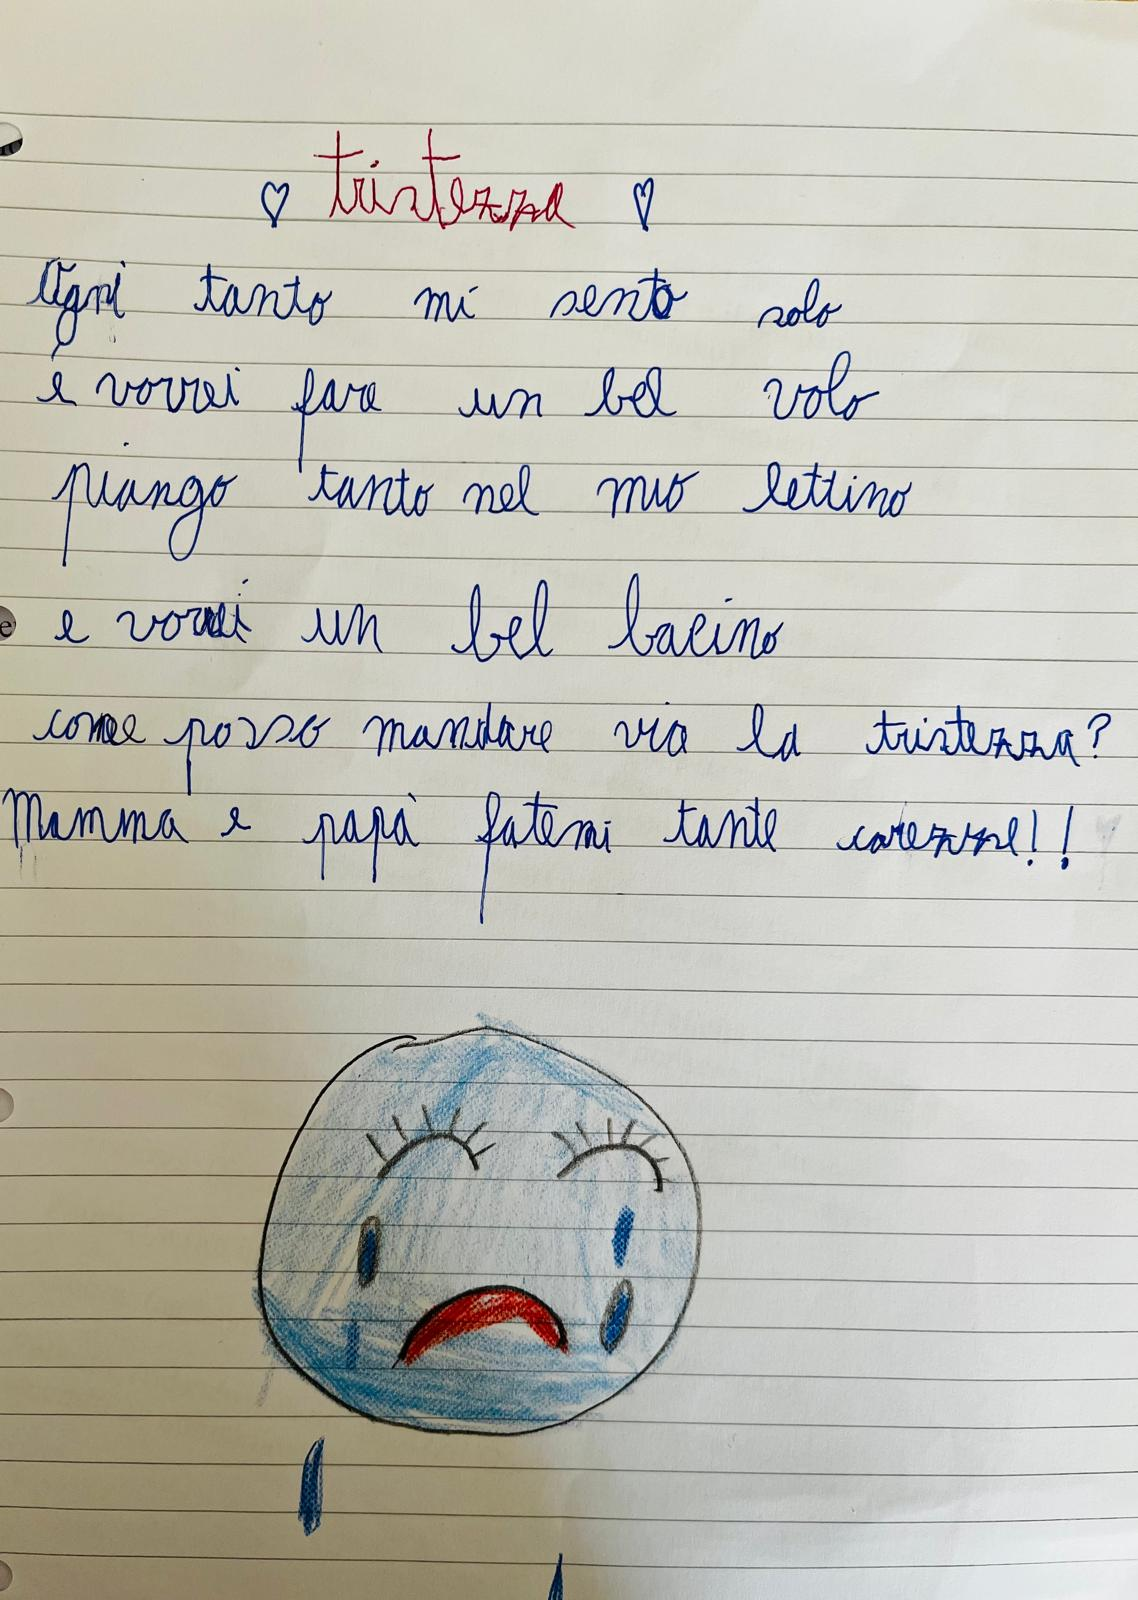 tristezza
Ogni tanto mi sento solo
e vorrei fare un bel volo
piango tanto nel mio lettino
e vorrei un bel bacino
come posso mandare via la tristezza?
Mamma e papà fatemi tante carezze!!